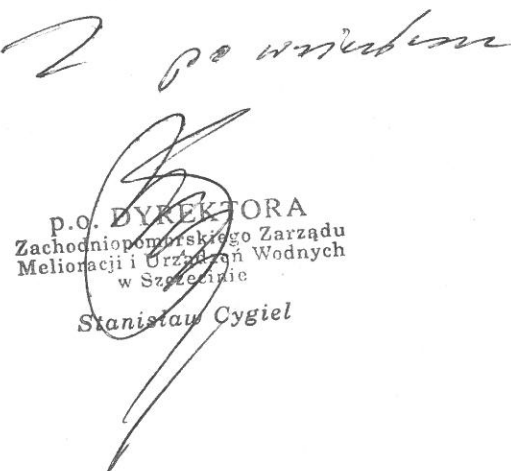 Z poważaniem
p.o. DYREKTORA
Zachodniopomorskiego Zarządu
Melioracji i Urządzeń Wodnych
w Szczecinie
Stanisław Cygiel